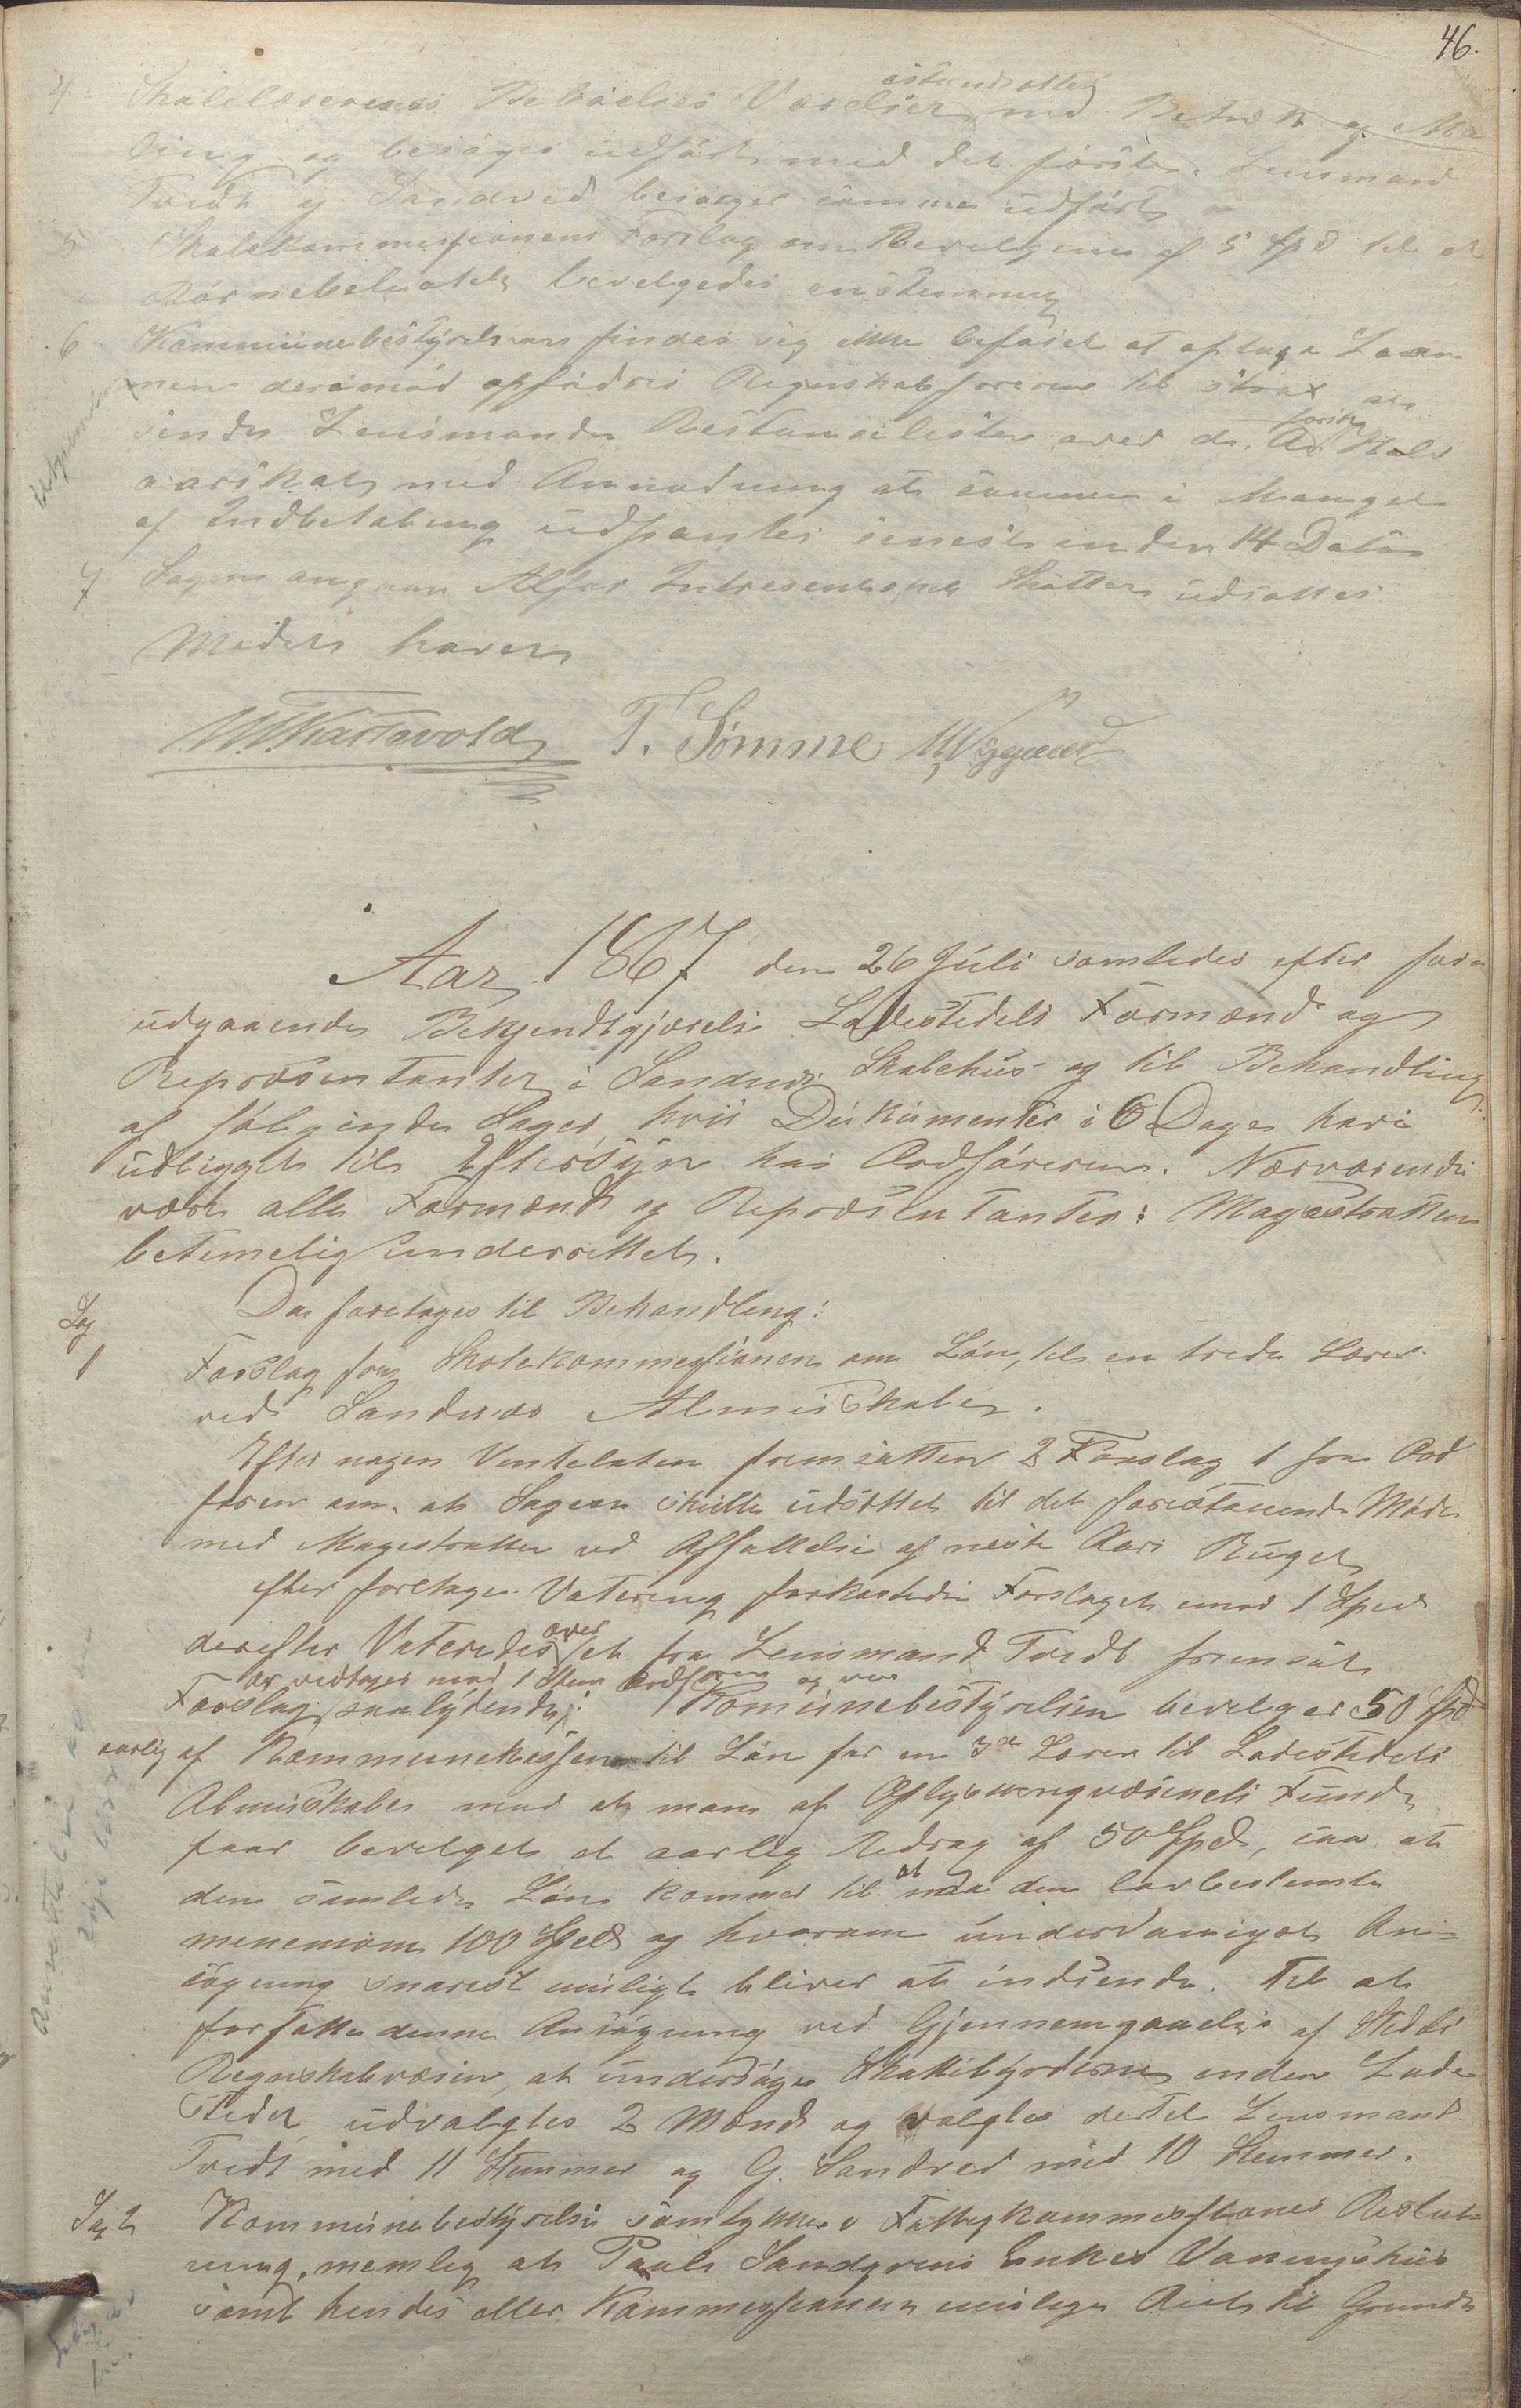 46.
4 Skolelærerenes Beboelses Værelser istandsettes med Betræk og Ma
ling og besørges udført med det første. Lensmand
Tvedt og Sandved besørger samme udført
5 Skolekommissionens Forslag om Bevelgning af 5 Spd til et
Børnebeliotek bevelgedes enstemmig
6 Kommunebestyrelsen findes sig ikke beføiet at optage Laan
men derimod opfodres Regnskabsføreren til strax at
sende Lensmanden Restanselister over de første Halv
aarsskat med Anmodning at samme i Mangel
af Indbetaling udpantes senest inden 14 Dato
7 Sagen angaan Alfar Intresentskab Skatter udsættes
Mødet hævet
T. Sømme
Aar 1867 den 26 Juli samledes efter for
udgaaende Bekjendtgjørelse Ladestedets Formænd og
Repræsentanter i Sandnes Skolehus og til Behandling
af følgende Sager, hvis Dukumenter i 6 Dage have
udligget til Eftersyn hos Ordføreren. Nærværende
vare alle Formænd og Repræsentanter: Magistratten
betimelig underrettet.
Da foretages til Behandling:
Sag
1 Forslag fra Skolekommessionen om Løn til en tredie Lærer
ved Sandnæs Almueskole.
Efter nogen Ventelation fremsatten 2 Forslag 1 fra Ord
føren om at Sagen skulle udsættes til det forestaaende Møde
med Magestratten ved Affattelse af neste Aars Buget
efter foretagen Votering forkastedes Forslaget mod 1 Stem
derefter Voteredes over et fra Lensmand Tvedt fremsat
Forslag saalydende: Komunebestyrelsen bevelger 50 Spd
er vedtaget mod 1 Stem Ordføren og var
aarlig af Kommunekassen til Løn for en 3de Lærer til Ladestedets
Almueskoler mod at man af Oplysningvæsenets Fund
faar bevelget et aarlig Bedrag af 50 Spd, saa at
den samlede Løn kommer til at naa den lovbestemte
menemom 100 Spd og hvorom underdanigst An-
søgning snarest muligt bliver at indsende. Til at
forfatte denne Ansøgning ved Gjennemgaaelse af Stedets
Regnskabvæsen, at undersøge Skattebyrderne inden Lade
stedet, udvalgtes 2 Mænd og valgtes dertil Lensmand
Tvedt med 11 Stemmer og G. Sandved med 10 Stemmer.
Sag 2 Kommunebestyrelse samtykker i Fattigkommissionens Beslut-
ning, nemlig at Paul Sandgrens Enkes Vaaningshus
samt hendes eller Kommessionens mulige Ret til Grunden